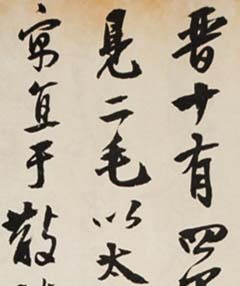 晉十有四
見二毛以太
寓直于散